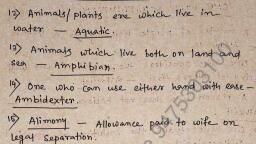 12) Animals/plants ere which live in
water — Aquatic.
13) Animals which live both on land and
sea — Amphibian.
14) One who can use either hand with ease —
Ambidexter.
15) Alimony — Allowance paid to wife on
legal separation.